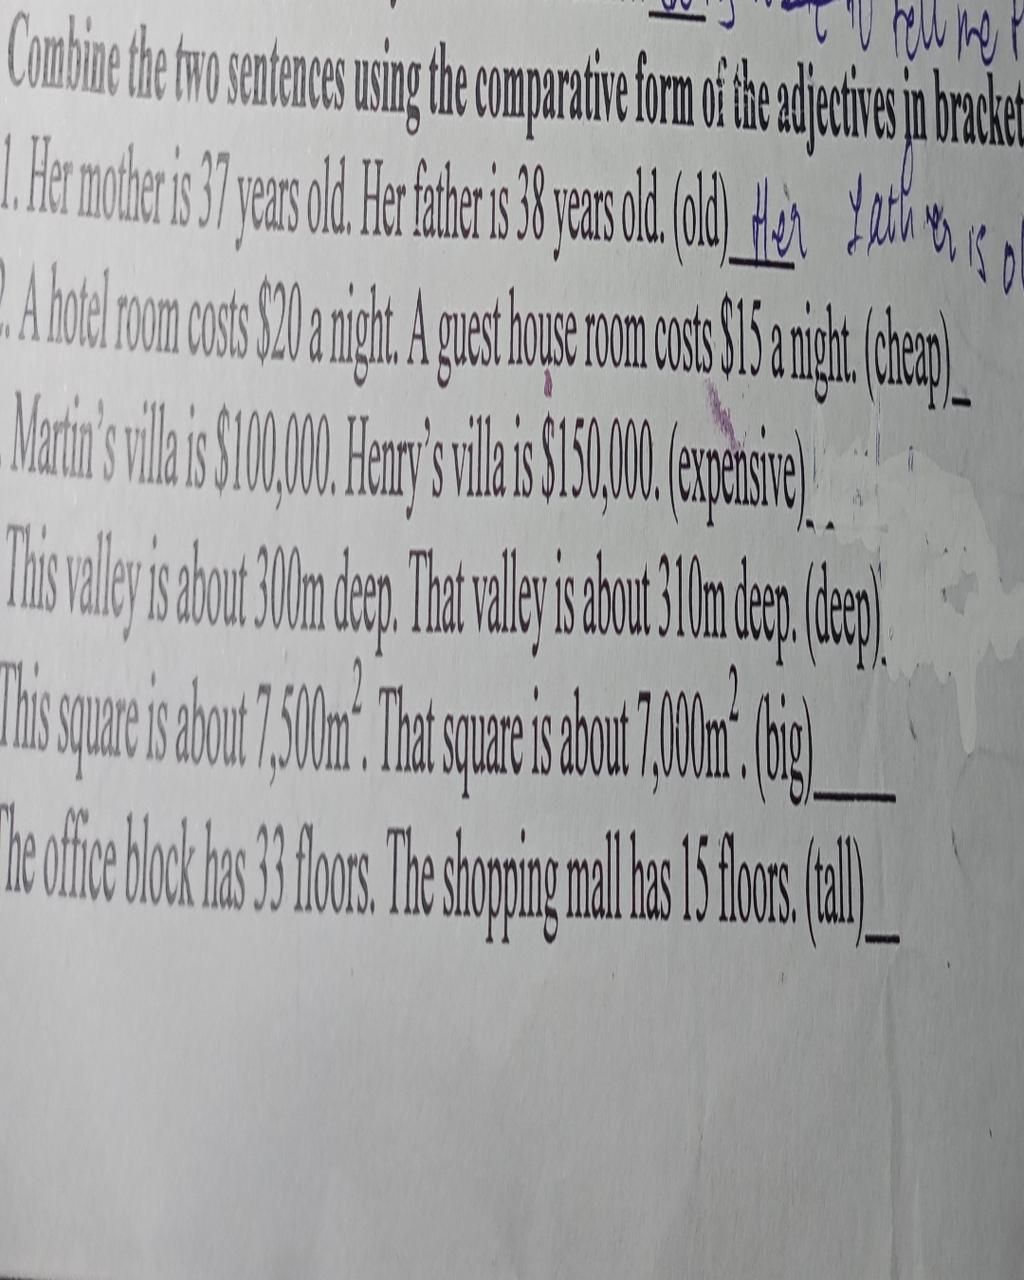 to tell me
Combine the two sentences using the comparative form of the adjectives in bracket
1. Her mother is 37 years old. Her father is 38 years old. (old) Her father is ol
2. A hotel room costs $20 a night. A guest house room costs $15 a night. (cheap)_
Martin's villa is $100,000. Henry's villa is $150,000. (expensive)_
This valley is about 300m deep. That valley is about 310m deep. (deep)
This square is about 7,500m². That square is about 7,000m². (big)____
The office block has 33 floors. The shopping mall has 15 floors. (tall)__